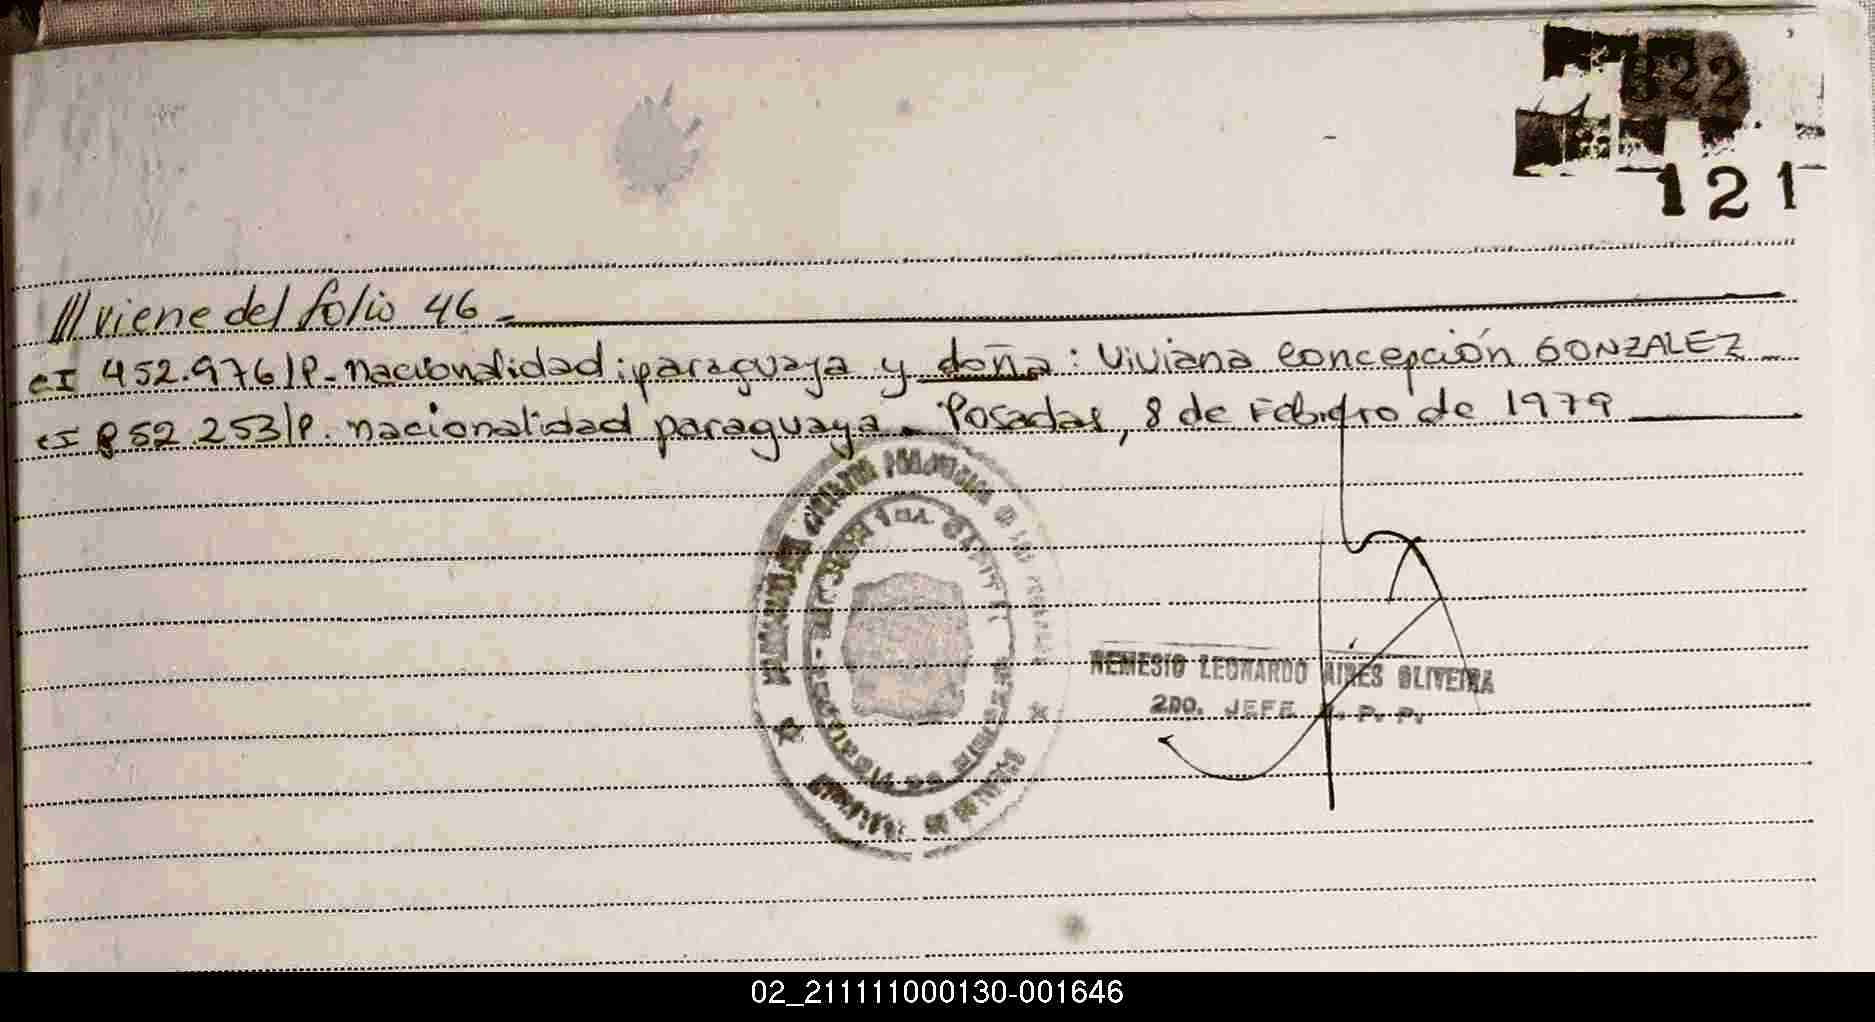 022
121
/// viene del folio 46 -
CI 452.976/P. nacionalidad: paraguaya y doña: Viviana Concepción GONZALEZ
CI 852.253/P. nacionalidad paraguaya. Posadas, 8 de Febrero de 1979
NEMESIO LEONARDO AIRES OLIVEIRA
2DO. JEFE R. P. P.
02_211111000130-001646